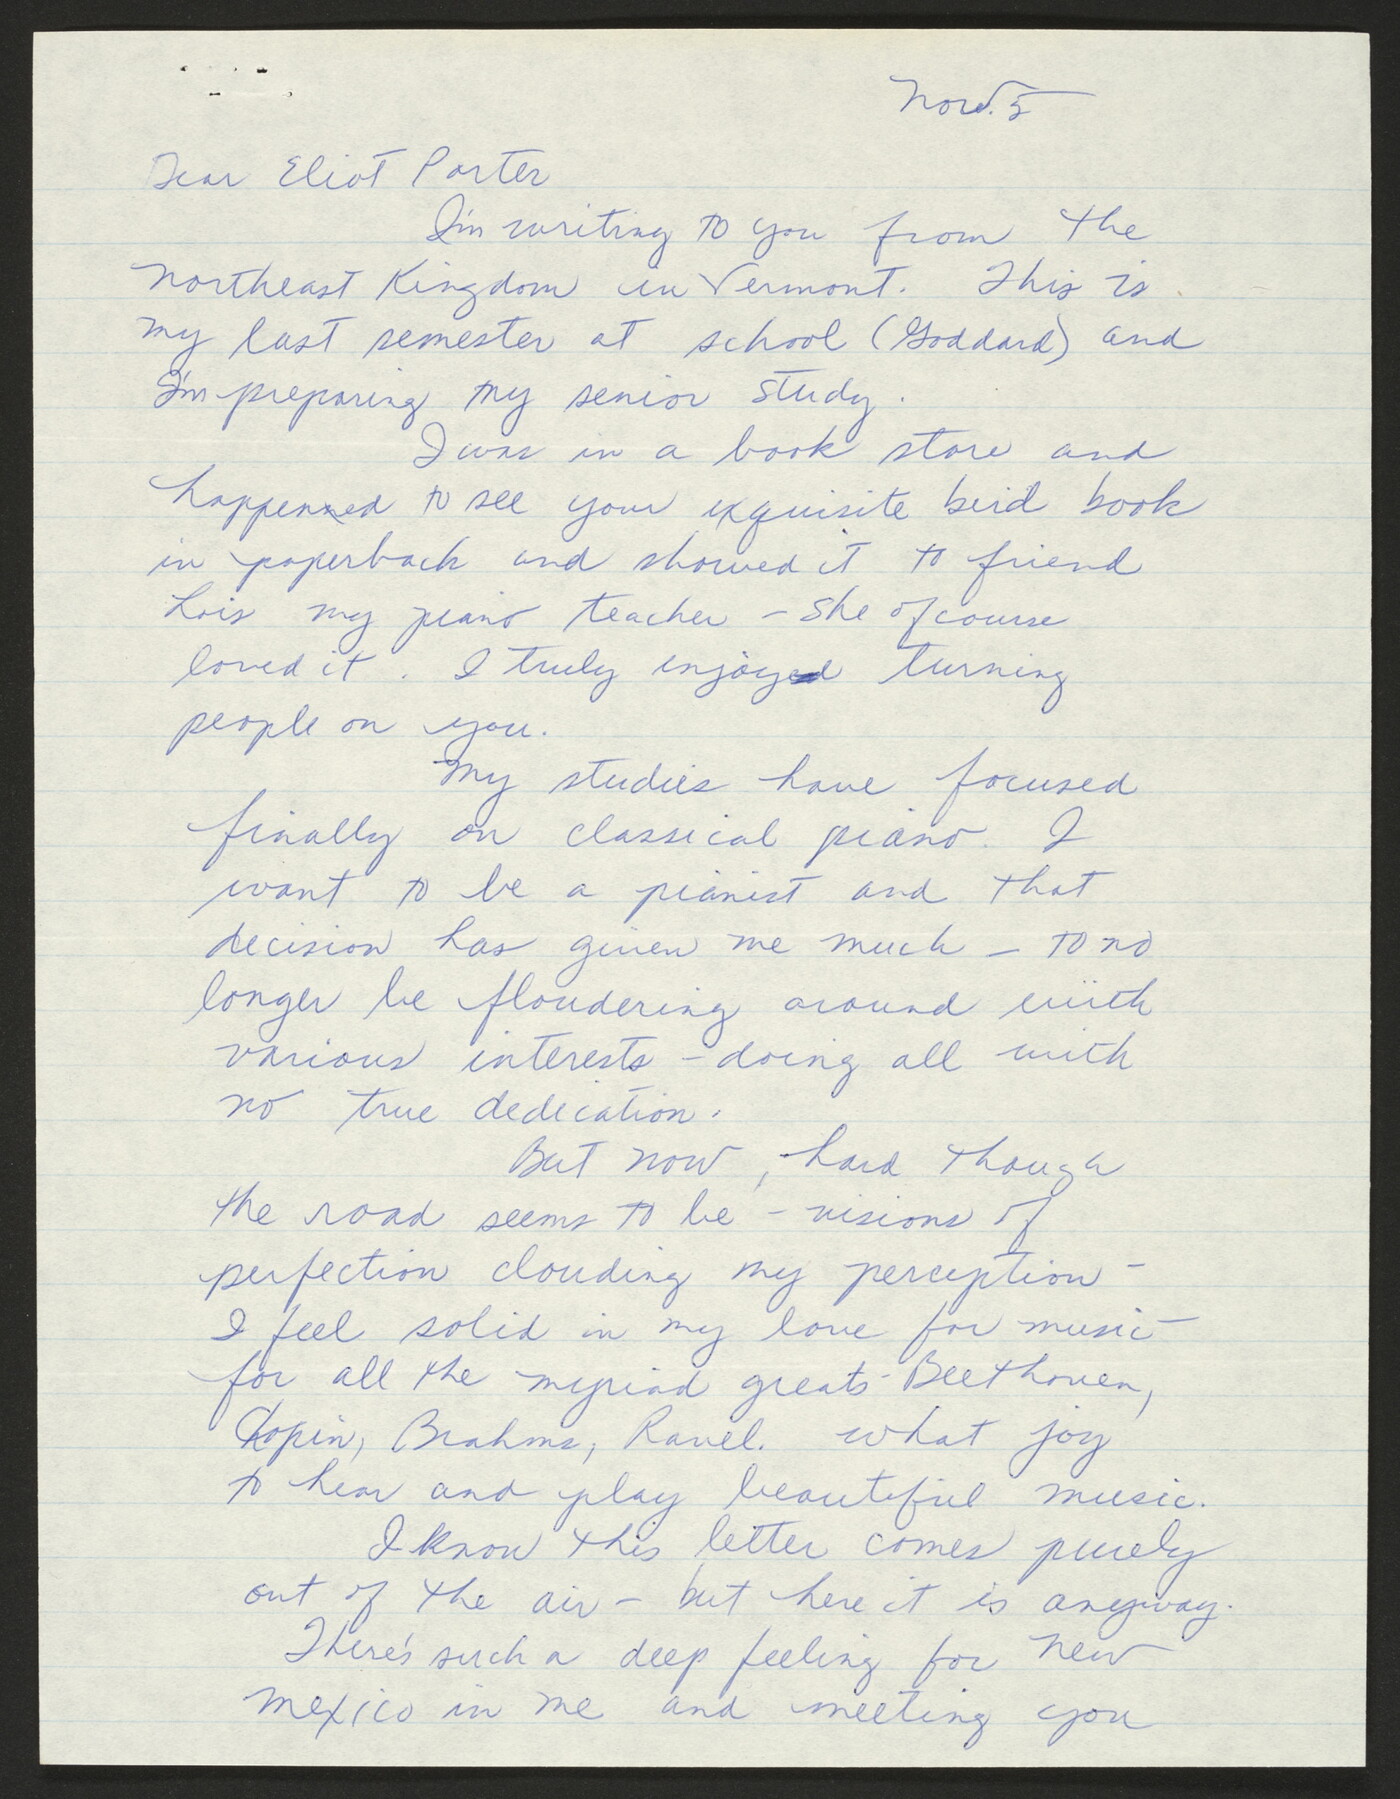 Nov. 5
Dear Eliot Porter
I'm writing to you from the
Northeast Kingdom in Vermont. This is
my last semester at school (Goddard) and
I'm preparing my senior study.
I was in a book store and
happenned to see your exquisite bird book
in paperback and showed it to friend
Lois my piano teacher - she of course
loved it. I truly enjoyed turning
people on you.
My studies have focused
finally on classical piano. I
want to be a pianist and that
decision has given me much - to no
longer be floudering around with
various interests - doing all with
no true dedication.
But now, hard though
the road seems to be - visions of
perfection clouding my perception -
I feel solid in my love for music -
for all the myriad greats - Beethoven,
Chopin, Brahms, Ravel. What joy
to hear and play beautiful music.
I know this letter comes purely
out of the air - but here it is anyway.
There's such a deep feeling for New
Mexico in me and meeting you